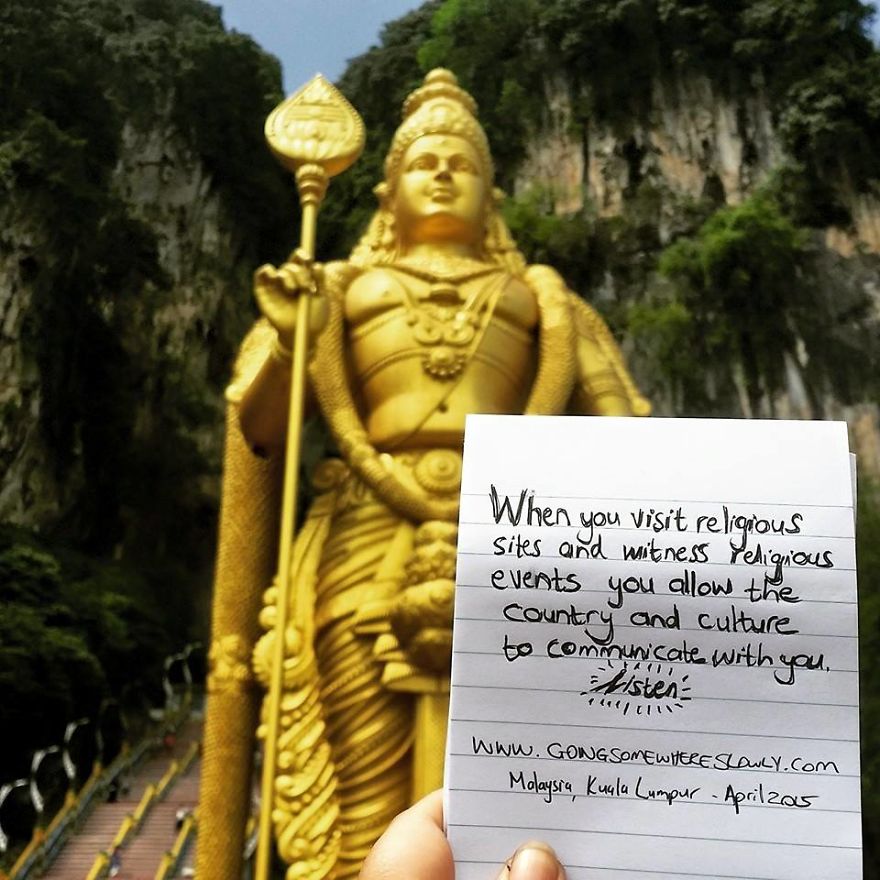 When you visit religious
sites and witness religious
events you allow the
country and culture
to communicate with you.
Listen
WWW.GOINGSOMEWHERESLOWLY.COM
Malaysia, Kuala Lumpur - April 2015